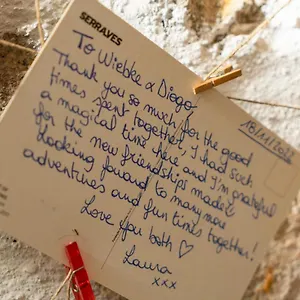 SERRALVES
To Wiebke & Diogo,
Thank you so much for the good
times spent together, I had such
a magical time here and I'm grateful
for the new friendships made &
looking forward to many more
adventures and fun times together!
Love you both ♡
Laura
xxx